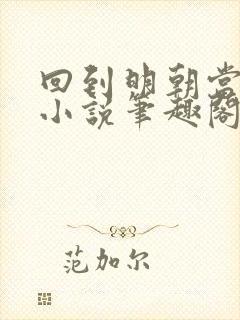 回到明朝当
小说笔趣阁
范加尔